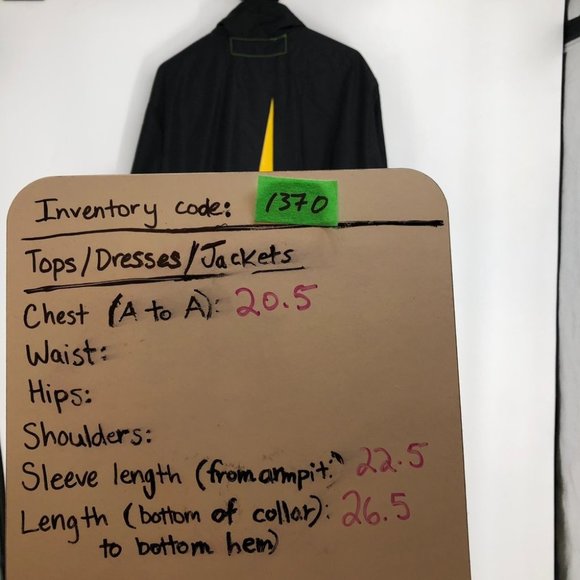 Inventory code: 1370
Tops/Dresses/Jackets
Chest (A to A): 20.5
Waist:
Hips:
Shoulders:
Sleeve length (from armpit: 22.5
Length (bottom of collar): 26.5
to bottom hem)